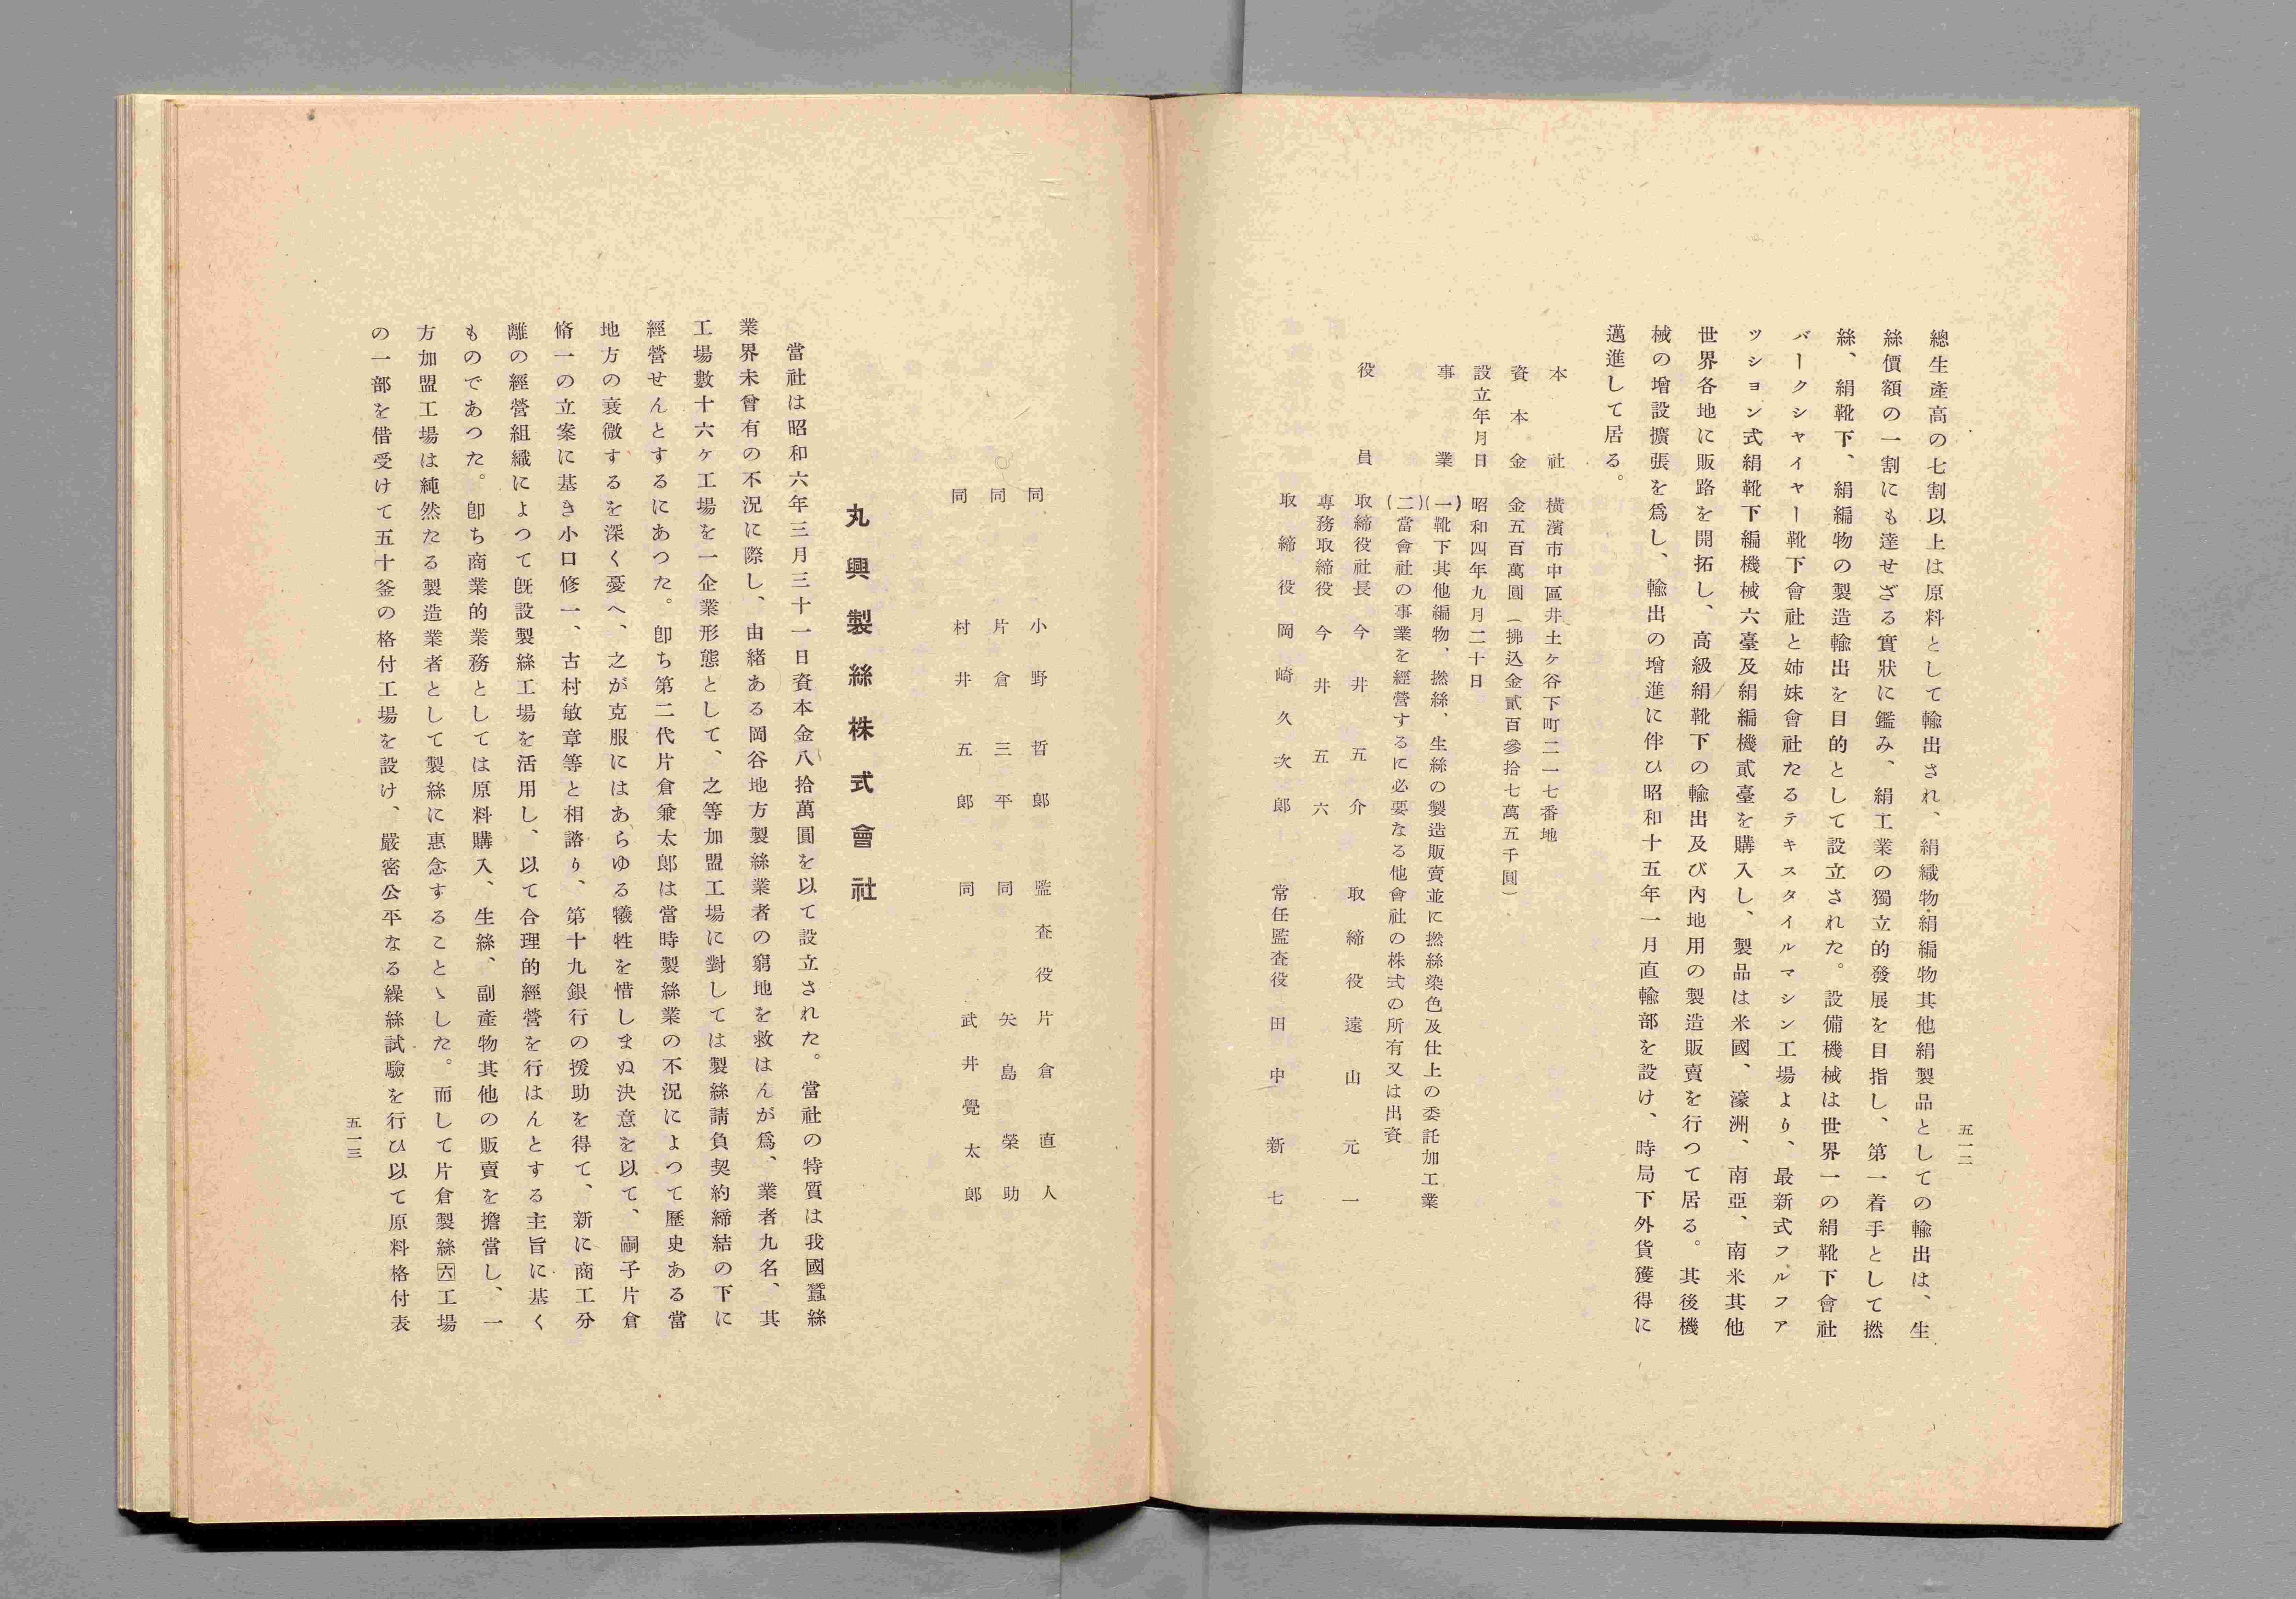 五一二
總生產高の七割以上は原料として輸出され、絹織物・絹編物其他絹製品としての輸出は、生
絲價額の一割にも達せざる實狀に鑑み、絹工業の獨立的發展を目指し、第一着手として撚
絲、絹靴下、絹編物の製造輸出を目的として設立された。設備機械は世界一の絹靴下會社
バークシヤイヤー靴下會社と姉妹會社たるテキスタイルマシン工場より、最新式フルフア
ツシヨン式絹靴下編機械六臺及絹編機貳臺を購入し、製品は米國、濠洲、南亞、南米其他
世界各地に販路を開拓し、高級絹靴下の輸出及び內地用の製造販賣を行つて居る。其後機
械の增設擴張を爲し、輸出の增進に伴ひ昭和十五年一月直輸部を設け、時局下外貨獲得に
邁進して居る。
本社 橫濱市中區井土ヶ谷下町二一七番地
資本金 金五百萬圓（拂込金貳百參拾七萬五千圓）
設立年月日 昭和四年九月二十日
事業 (一)靴下其他編物、撚絲、生絲の製造販賣並に撚絲染色及仕上の委託加工業
(二)當會社の事業を經營するに必要なる他會社の株式の所有又は出資
役員 取締役社長 今井五介 取締役 遠山元一
專務取締役 今井五六
取締役 岡崎久次郞 常任監査役 田中新七
同 小野哲郞 監査役 片倉直人
同 片倉三平 同 矢島榮助
同 村井五郞 同 武井覺太郞
丸興製絲株式會社
當社は昭和六年三月三十一日資本金八拾萬圓を以て設立された。當社の特質は我國蠶絲
業界未曾有の不況に際し、由緖ある岡谷地方製絲業者の窮地を救はんが爲、業者九名、其
工場數十六ヶ工場を一企業形態として、之等加盟工場に對しては製絲請負契約締結の下に
經營せんとするにあつた。卽ち第二代片倉兼太郞は當時製絲業の不況によつて歷史ある當
地方の衰微するを深く憂へ、之が克服にはあらゆる犧牲を惜しまぬ決意を以て、嗣子片倉
脩一の立案に基き小口修一、古村敏章等と相諮り、第十九銀行の援助を得て、新に商工分
離の經營組織によつて旣設製絲工場を活用し、以て合理的經營を行はんとする主旨に基く
ものであつた。卽ち商業的業務としては原料購入、生絲、副產物其他の販賣を擔當し、一
方加盟工場は純然たる製造業者として製絲に惠念することゝした。而して片倉製絲六工場
の一部を借受けて五十釜の格付工場を設け、嚴密公平なる繰絲試驗を行ひ以て原料格付表
五一三